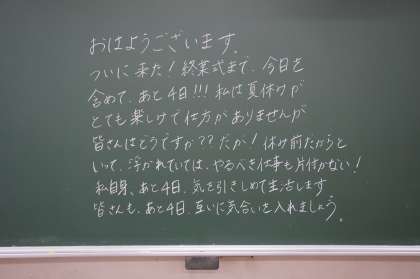 おはようございます。
ついに来た！終業式まで、今日を
含めて、あと4日!!!私は夏休みが
とても楽しみで仕方がありませんが
皆さんはどうですか??だが！休み前だからと
いって、浮かれていては、やるべき仕事も片付かない！
私自身、あと4日、気を引きしめて生活します。
皆さんも、あと4日、互いに気合いを入れましょう。